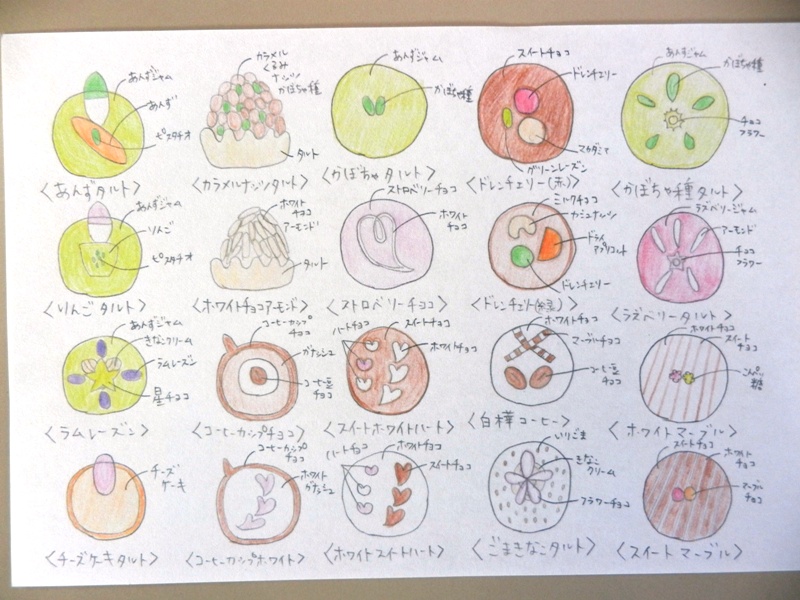 あんずジャム
あんず
ピスタチオ
<あんずタルト>
カラメル
くるみ
ナッツ
かぼちゃ種
タルト
<カラメルナッツタルト>
あんずジャム
かぼちゃ種
<かぼちゃタルト>
スイートチョコ
ドレンチェリー
マカダミア
グリーンレーズン
<ドレンチェリー(赤)>
あんずジャム
かぼちゃ種
チョコ
フラワー
<かぼちゃ種タルト>
あんずジャム
りんご
ピスタチオ
<りんごタルト>
ホワイト
チョコ
アーモンド
タルト
<ホワイトチョコアーモンド>
ストロベリーチョコ
ホワイト
チョコ
<ストロベリーチョコ>
ミルクチョコ
カシューナッツ
ドライ
アプリコット
ドレンチェリー
<ドレンチェリー(緑)>
ラズベリージャム
アーモンド
チョコ
フラワー
<ラズベリータルト>
あんずジャム
きなこクリーム
ラムレーズン
星チョコ
<ラムレーズン>
コーヒーカップ
チョコ
ガナッシュ
コーヒー豆
チョコ
<コーヒーカップチョコ>
ハートチョコ
スイートチョコ
ホワイトチョコ
<スイートホワイトハート>
ホワイトチョコ
マーブルチョコ
コーヒー豆
チョコ
<白樺コーヒー>
ホワイトチョコ
スイート
チョコ
こんペイ
糖
<ホワイトマーブル>
チーズ
ケーキ
<チーズケーキタルト>
コーヒーカップ
チョコ
ホワイト
ガナッシュ
<コーヒーカップホワイト>
ハートチョコ
ホワイトチョコ
スイートチョコ
<ホワイトスイートハート>
いりごま
きなこ
クリーム
フラワーチョコ
<ごまきなこタルト>
スイートチョコ
ホワイト
チョコ
マーブル
チョコ
<スイートマーブル>